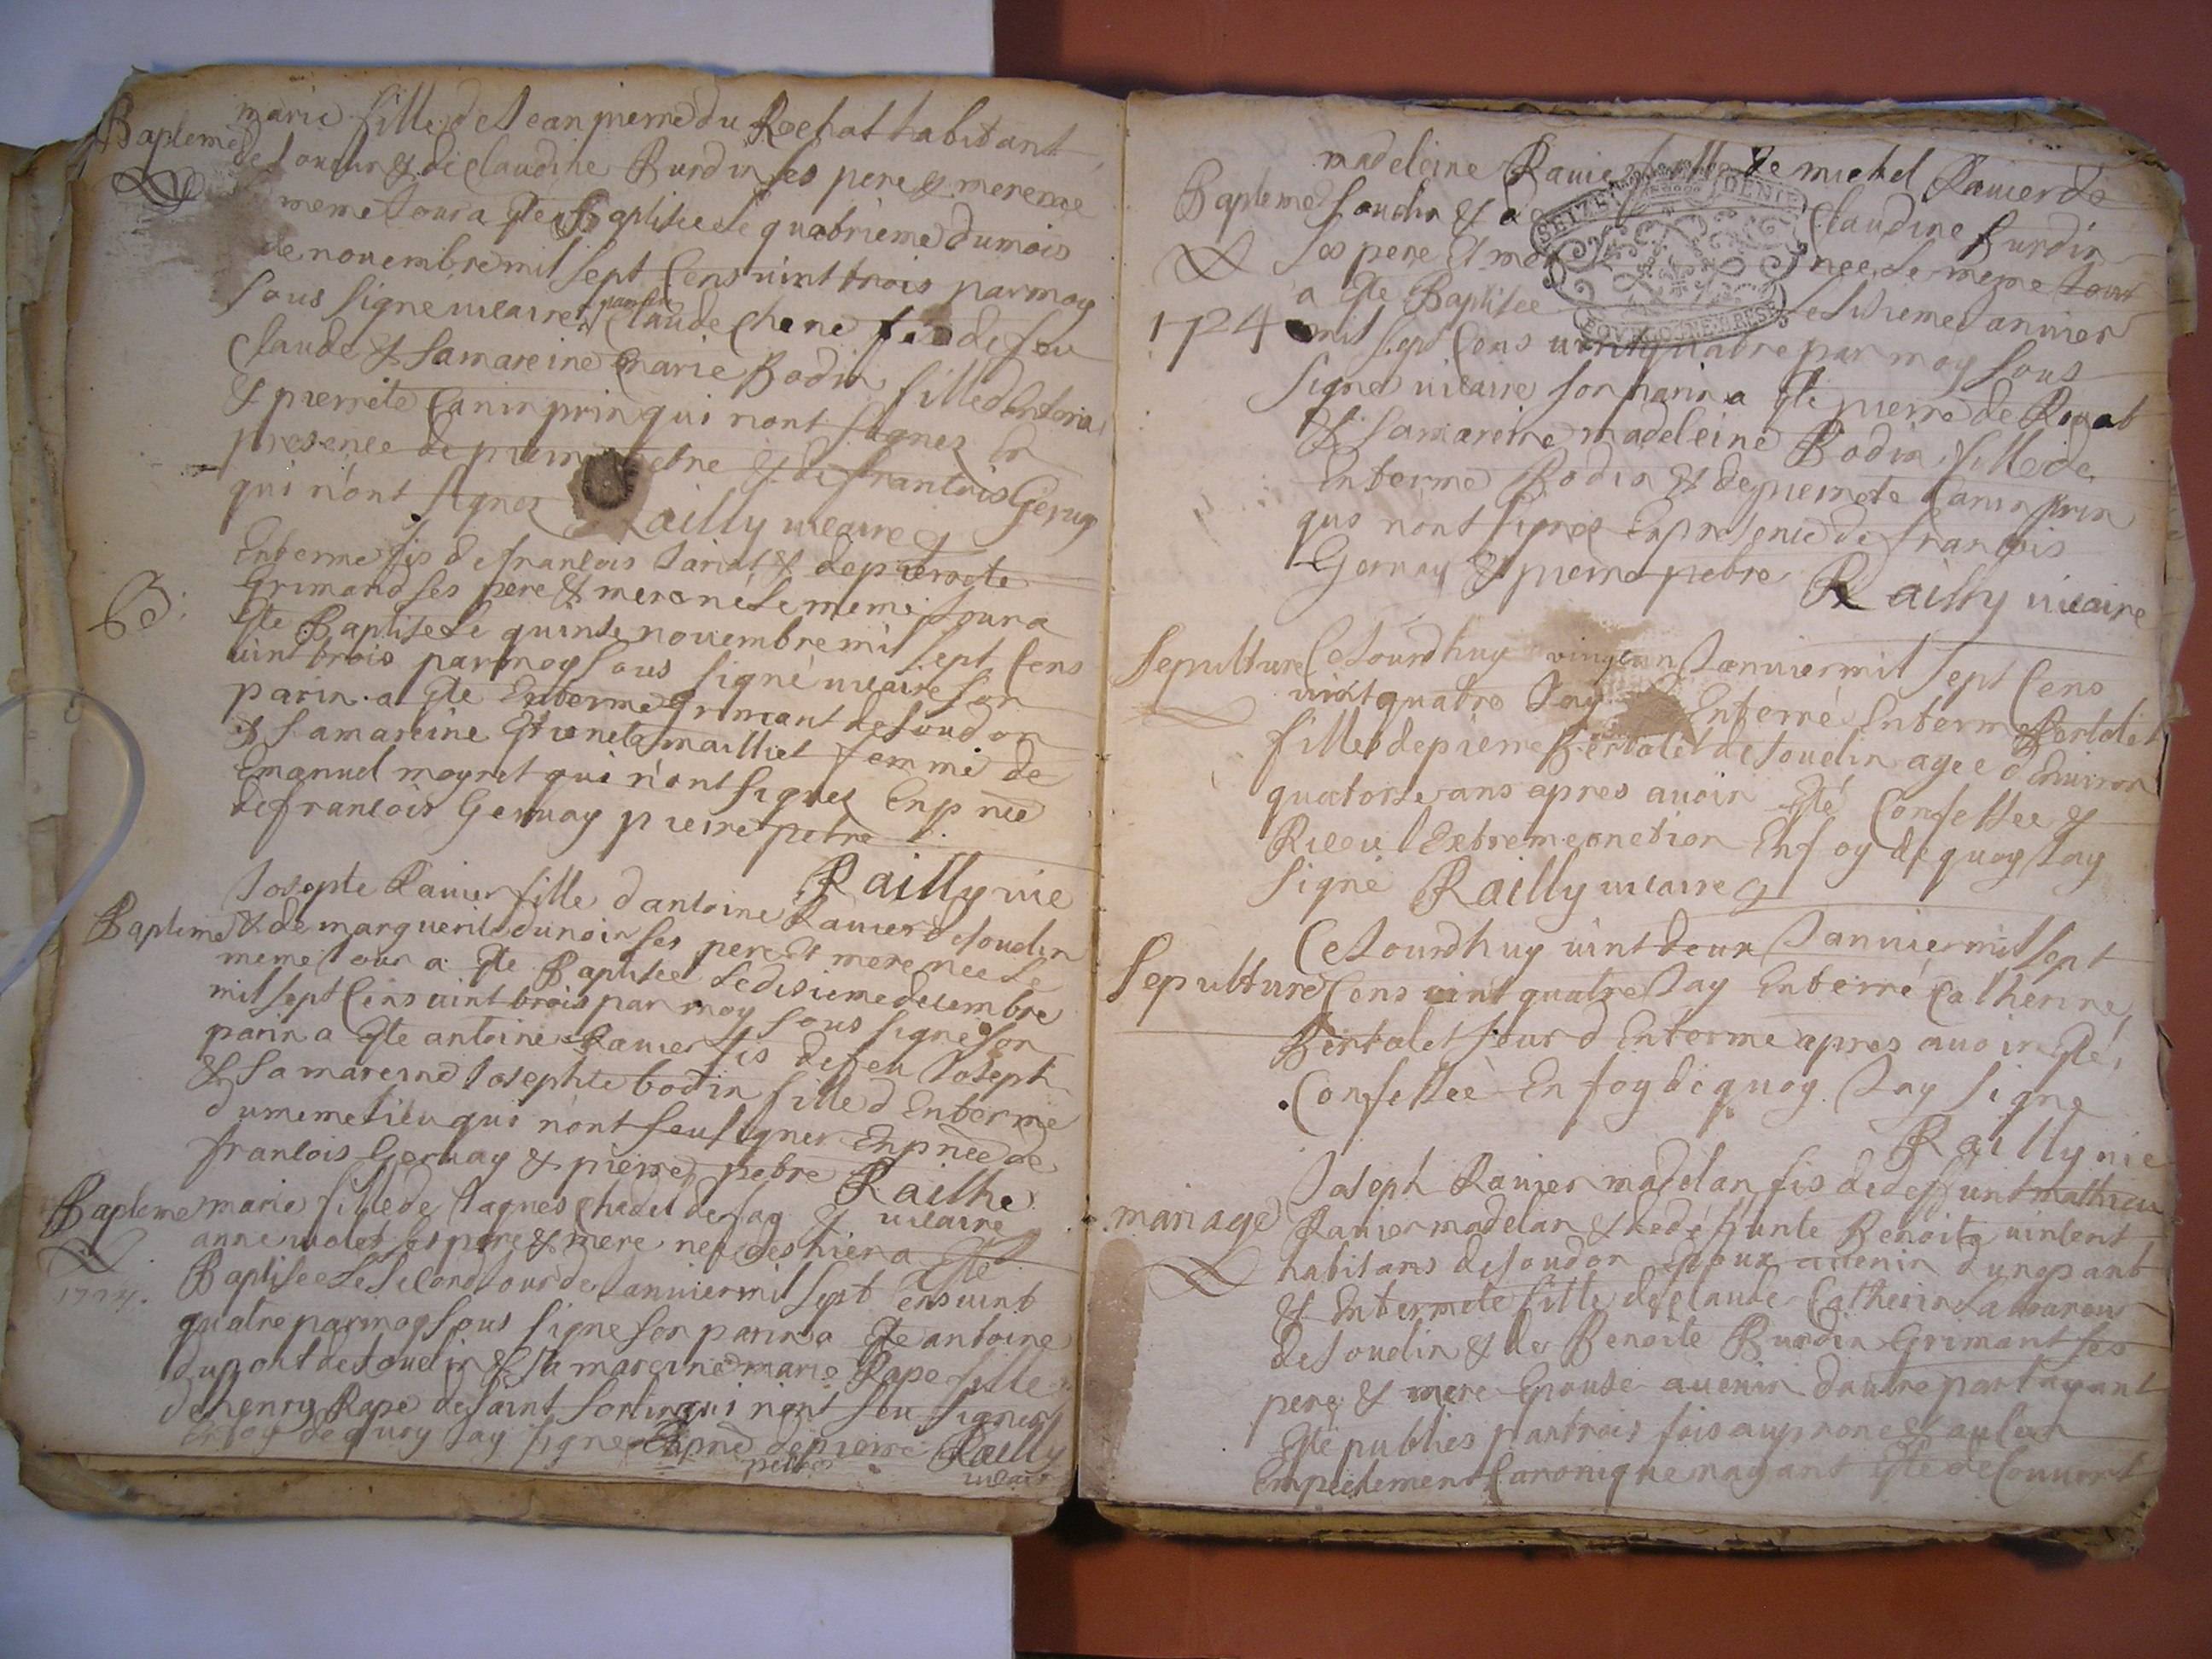 Bapteme
marie fille de Jean pierre du Rochat habitant
de Soudin & de Claudine Burdin ses pere & mere nee
meme Jour a Eté Baptisee Le quatrieme du mois
de novembre mil sept Cens vint trois par moy
sous signe vicaire parin Claude Chene fis de feu
Claude & sa mareine marie Bodin fille d Enterme
& pierrete Caninprin qui nont signes En
presence de pierre petre & de francois Gervay
qui n'ont signes Railly vicaire
B:
Enterme fis de francois Jariat & de pierrete
Grimand ses pere & mere né Le meme Jour a
Eté Baptise Le quinse novembre mil sept Cens
vint trois par moy sous signé vicaire son
parin a Eté Enterme Grimant de Soudon
& sa mareine Etienete mailliet femme de
Emanuel moyret qui n'ont signes En pnce
de francois Gervay pierre petre
Railly vic
Bapteme
Josepte Ravier fille d antoine Ravier de Soudin
& de marguerite dunoir ses pere Et mere nee Le
meme Jour a Eté Baptisee Le disieme decembre
mil sept Cens vint trois par moy sous signe son
parin a Eté antoine Ravier fis de feu Joseph
& sa mareine Josephte bodin fille d Enterme
du meme lieu qui n'ont seu signer En pnce de
francois Gervay & pierre petre Railhe
vicaire
Bapteme
1724.
marie fille de Jaques Chadel de fay &
anne violet ses pere & mere nee des hier a Eté
Baptisee Le second Jour de Janvier mil sept Cens vint
quatre par moy sous signe son parin a Eté antoine
dupont de Soudin & sa mareine marie Rape fille
de henry Rape de saint sorlin qui n'ont seu signer
En foy de quoy Jay signe En pnce de pierre
petre
Railly
vicaire
Bapteme
1724
madeleine Ravier fille de michel Ravier de
Soudin & de Claudine Burdin
ses pere Et mere nee Le meme Jour
a Eté Baptisee Le Janvier
mil sept Cens vint quatre par moy sous
signe vicaire son parin a Eté pierre de Rogat
& sa mareine madeleine Bodin fille de
Enterme Bodin & de pierrete Caninprin
qui nont signes En presence de francois
Gervay & pierre petre Railly vicaire
SEIZE DENIE
BOURGOGNE BRESSE
Sepulture
Ce Jourdhuy vingt un Janvier mil sept Cens
vint quatre Jay Enterré Enterme Bertolet
fille de pierre Bertolet de Soudin agee d Environ
quatorse ans apres avoir Eté Confessee &
Receu l Extreme onction En foy de quoy Jay
signé Railly vicaire
Sepulture
Ce Jourdhuy vint deux Janvier mil sept
Cens vint quatre Jay Enterré Catherine
Bertolet seur d Enterme apres avoir Eté
Confessée En foy de quoy Jay signe
Railly vic
mariage
Joseph Ravier madelan fis de deffunt mathieu
Ravier madelan & de défunte Benoite vincent
habitans de Soudon Epoux avenir d une part
& Entermete fille de Claude Catherin
de Soudin & de Benoite Burdin Grimant ses
pere & mere Epouse avenir d autre part ayant
Eté publiés par trois fois au prone & aucun
Empechement Canonique nayant Eté deCouvert